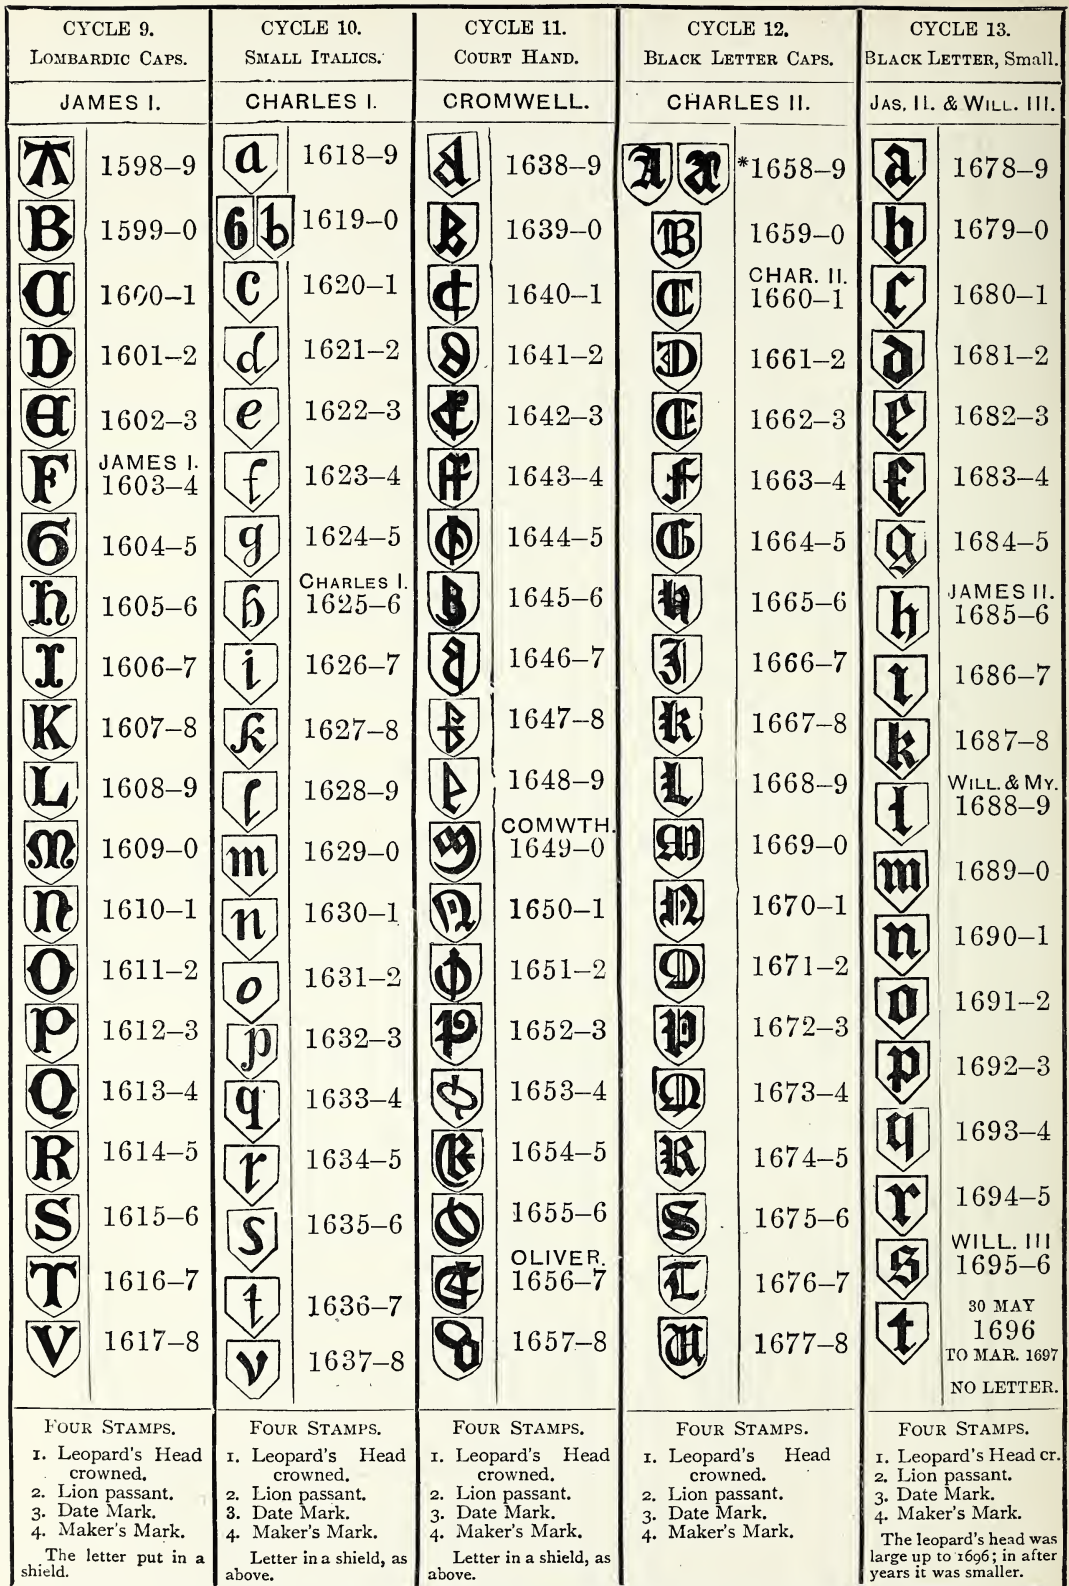 CYCLE 9.
LOMBARDIC CAPS.
JAMES I.
A 1598–9
B 1599–0
C 1600–1
D 1601–2
E 1602–3
JAMES I.
F 1603–4
G 1604–5
H 1605–6
I 1606–7
K 1607–8
L 1608–9
M 1609–0
N 1610–1
O 1611–2
P 1612–3
Q 1613–4
R 1614–5
S 1615–6
T 1616–7
V 1617–8
FOUR STAMPS.
1. Leopard's Head
crowned.
2. Lion passant.
3. Date Mark.
4. Maker's Mark.
The letter put in a
shield.
CYCLE 10.
SMALL ITALICS.
CHARLES I.
a 1618–9
b b 1619–0
c 1620–1
d 1621–2
e 1622–3
f 1623–4
g 1624–5
CHARLES I.
h 1625–6
i 1626–7
k 1627–8
l 1628–9
m 1629–0
n 1630–1
o 1631–2
p 1632–3
q 1633–4
r 1634–5
s 1635–6
t 1636–7
v 1637–8
FOUR STAMPS.
1. Leopard's Head
crowned.
2. Lion passant.
3. Date Mark.
4. Maker's Mark.
Letter in a shield, as
above.
CYCLE 11.
COURT HAND.
CROMWELL.
1638–9
1639–0
1640–1
1641–2
1642–3
1643–4
1644–5
1645–6
1646–7
1647–8
1648–9
COMWTH.
1649–0
1650–1
1651–2
1652–3
1653–4
1654–5
1655–6
OLIVER.
1656–7
1657–8
FOUR STAMPS.
1. Leopard's Head
crowned.
2. Lion passant.
3. Date Mark.
4. Maker's Mark.
Letter in a shield, as
above.
CYCLE 12.
BLACK LETTER CAPS.
CHARLES II.
A A *1658–9
B 1659–0
CHAR. II.
C 1660–1
D 1661–2
E 1662–3
F 1663–4
G 1664–5
H 1665–6
I 1666–7
K 1667–8
L 1668–9
M 1669–0
N 1670–1
O 1671–2
P 1672–3
Q 1673–4
R 1674–5
S 1675–6
T 1676–7
U 1677–8
FOUR STAMPS.
1. Leopard's Head
crowned.
2. Lion passant.
3. Date Mark.
4. Maker's Mark.
CYCLE 13.
BLACK LETTER, Small.
JAS. II. & WILL. III.
a 1678–9
b 1679–0
c 1680–1
d 1681–2
e 1682–3
f 1683–4
g 1684–5
JAMES II.
h 1685–6
i 1686–7
k 1687–8
WILL. & MY.
l 1688–9
m 1689–0
n 1690–1
o 1691–2
p 1692–3
q 1693–4
r 1694–5
WILL. III
s 1695–6
30 MAY
t 1696
TO MAR. 1697
NO LETTER.
FOUR STAMPS.
1. Leopard's Head cr.
2. Lion passant.
3. Date Mark.
4. Maker's Mark.
The leopard's head was
large up to 1696; in after
years it was smaller.